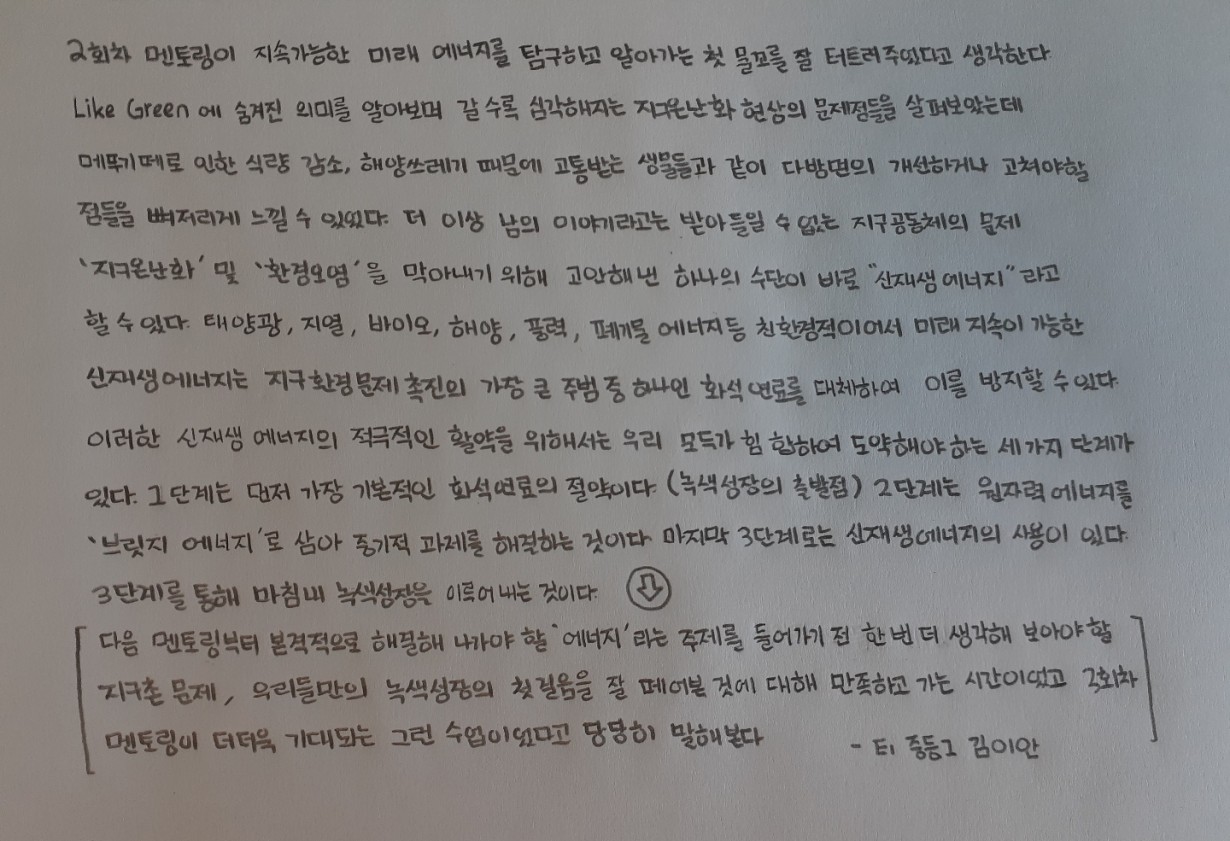 2회차 멘토링이 지속가능한 미래 에너지를 탐구하고 알아가는 첫 물꼬를 잘 터트려주었다고 생각한다.
Like Green에 숨겨진 의미를 알아보며 갈 수록 심각해지는 지구온난화 현상의 문제점들을 살펴보았는데
메뚜기떼로 인한 식량 감소, 해양쓰레기 때문에 고통받는 생물들과 같이 다방면의 개선하거나 고쳐야할
점들을 뼈저리게 느낄 수 있었다. 더 이상 남의 이야기라고는 받아들일 수 없는 지구공동체의 문제
'지구온난화' 및 '환경오염'을 막아내기 위해 고안해 낸 하나의 수단이 바로 "신재생 에너지"라고
할 수 있다. 태양광, 지열, 바이오, 해양, 풍력, 폐기물 에너지등 친환경적이어서 미래 지속이 가능한
신재생에너지는 지구환경문제 촉진의 가장 큰 주범 중 하나인 화석 연료를 대체하여 이를 방지할 수 있다.
이러한 신재생 에너지의 적극적인 활약을 위해서는 우리 모두가 힘 합하여 도약해야 하는 세 가지 단계가
있다. 1단계는 먼저 가장 기본적인 화석연료의 절약이다. (녹색성장의 출발점) 2단계는 원자력 에너지를
'브릿지 에너지'로 삼아 중기적 과제를 해결하는 것이다. 마지막 3단계로는 신재생에너지의 사용이 있다.
3단계를 통해 마침내 녹색성장을 이루어 내는 것이다. ⇩
다음 멘토링부터 본격적으로 해결해 나가야 할 '에너지'라는 주제를 들어가기 전 한 번 더 생각해 보아야 할
지구촌 문제, 우리들만의 녹색성장의 첫걸음을 잘 떼어본 것에 대해 만족하고 가는 시간이었고 3회차
멘토링이 더더욱 기대되는 그런 수업이었다고 당당히 말해본다
- E1 중등1 김이안